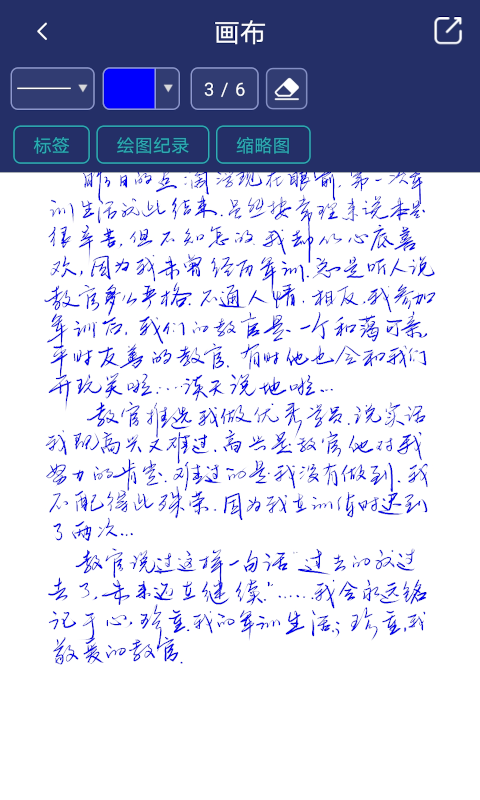 画布
3 / 6
标签 绘图纪录 缩略图
昨日的点滴浮现在眼前，第一次军
训生活就此结束，虽然按常理来说本是
很辛苦，但不知怎的我却从心底喜
欢，因为我未曾经历军训，总是听人说
教官多么严格，不通人情，相反，我参加
军训后，我们的教官是一个和蔼可亲，
平时友善的教官，有时他也会和我们
开玩笑啦…谈天说地啦…
教官推选我做优秀学员，说实话
我既高兴又难过，高兴是教官他对我
努力的肯定，难过的是我没有做到，我
不配得此殊荣，因为我在训练时迟到
了两次…
教官说过这样一句话"过去的放过
去了，未来还在继续"……我会永远铭
记于心，珍重，我的军训生活；珍重，我
敬爱的教官.